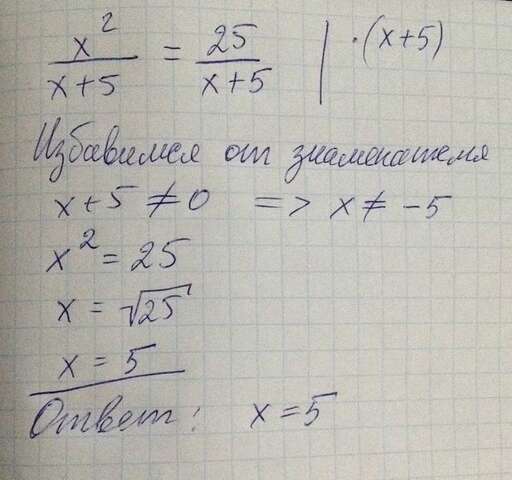 x² / x+5 = 25 / x+5 | · (x+5)
Избавимся от знаменателя
x+5 ≠ 0 => x ≠ -5
x² = 25
x = √25
x = 5
Ответ: x = 5